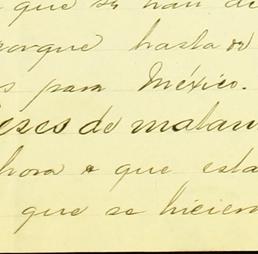 que se han de
porque hasta
s para México.
eses de matan
hora que esta
que se hicier